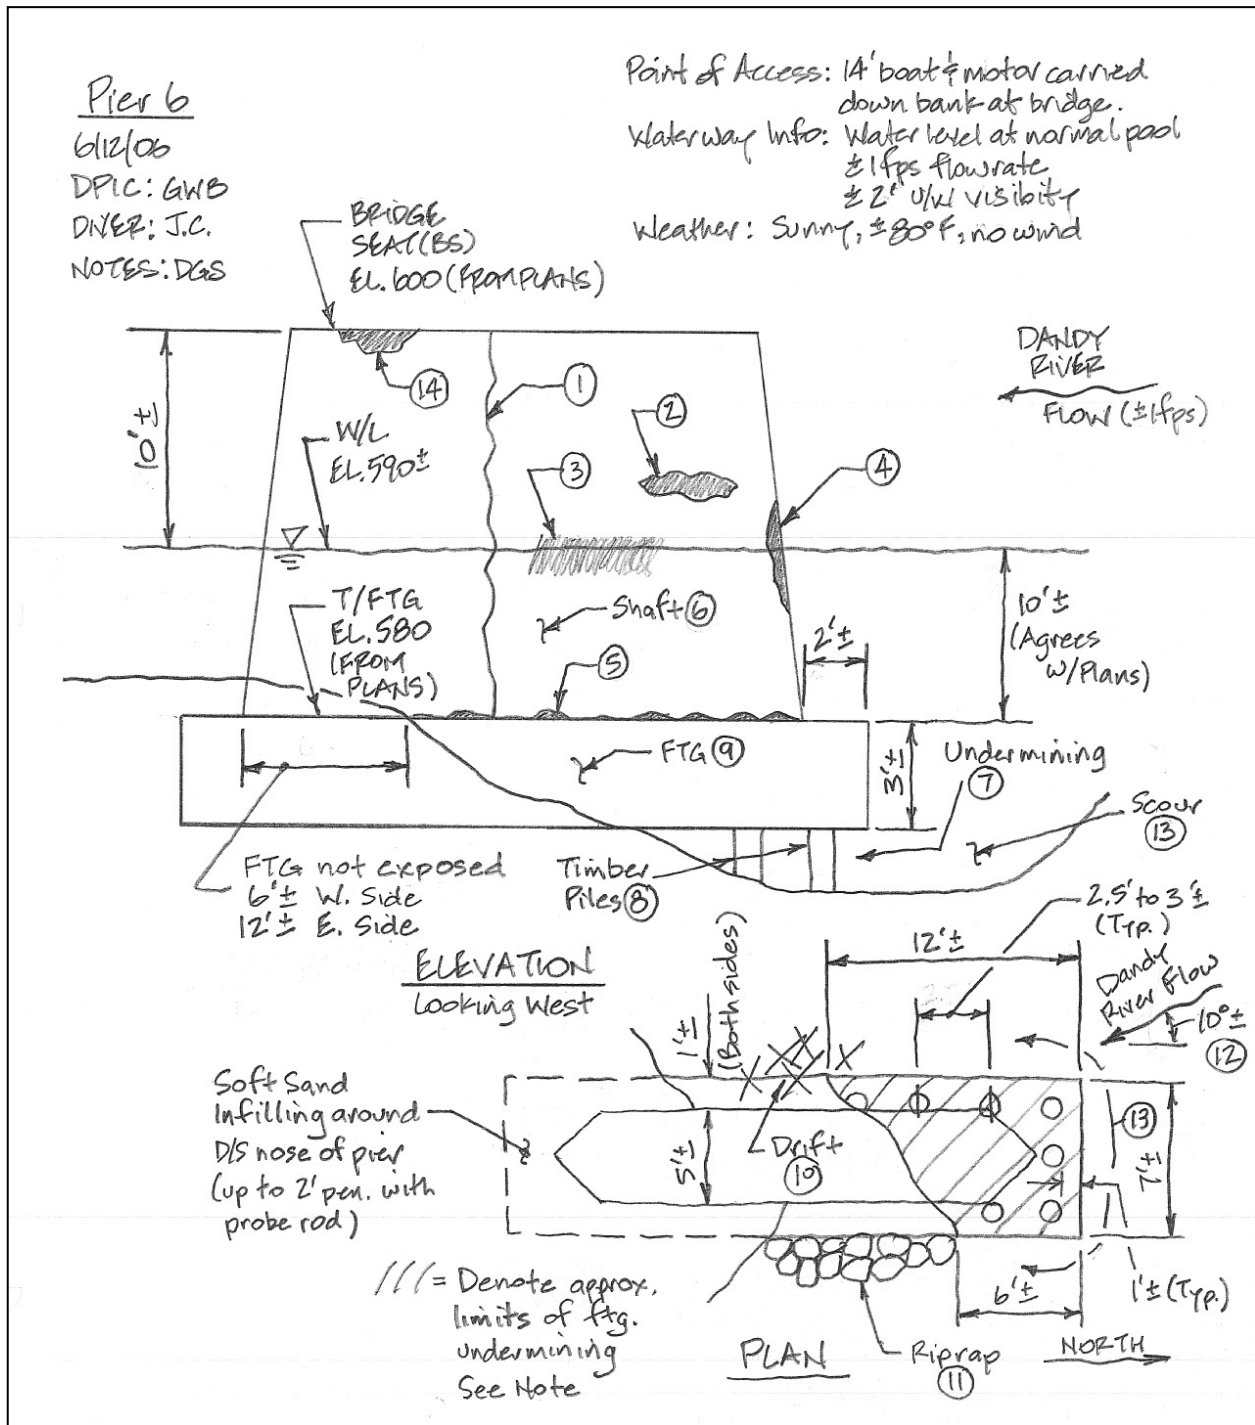 Pier 6
6/12/06
DPIC: GWB
DIVER: J.C.
NOTES: DGS
Point of Access: 14' boat & motor carried
down bank at bridge.
Waterway Info: Water level at normal pool
±1fps flowrate
±2' U/W visibity
Weather: Sunny, ±80°F, no wind
BRIDGE
SEAT (BS)
EL. 600 (FROM PLANS)
DANDY
RIVER
FLOW (±1fps)
14
1
2
3
4
10'±
W/L
EL. 590±
T/FTG
EL. 580
(FROM
PLANS)
Shaft 6
5
2'±
10'±
(Agrees
w/Plans)
FTG 9
3'±
Undermining
7
Scour
13
FTG not exposed
6'± W. Side
12'± E. Side
Timber
Piles 8
ELEVATION
Looking West
2.5' to 3'±
(Typ.)
12'±
1'±
(Both sides)
Dandy
River Flow
10°±
12
Soft Sand
Infilling around
D/S nose of pier
(up to 2' pen. with
probe rod)
5'±
Drift
10
13
7'±
6'±
1'± (Typ.)
/// = Denote approx.
limits of ftg.
undermining
See Note
PLAN
Riprap
11
NORTH